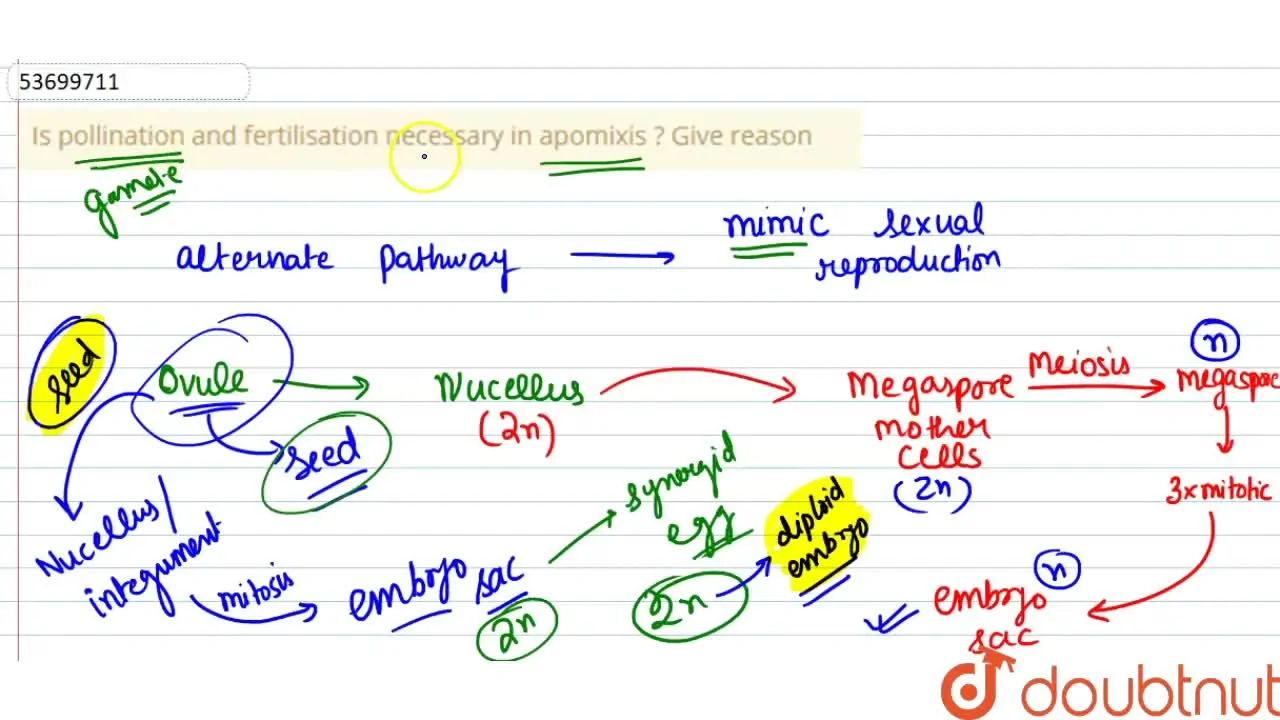 53699711
Is pollination and fertilisation necessary in apomixis ? Give reason
gamete
alternate pathway mimic sexual
reproduction
seed
Ovule Nucellus Megaspore Meiosis n
(2n) mother megaspore
cells
(2n)
seed
3x mitotic
synergid
egg
2n
diploid
embryo
Nucellus/
integument
mitosis
embryo sac
2n
n
embryo
sac
doubtnut